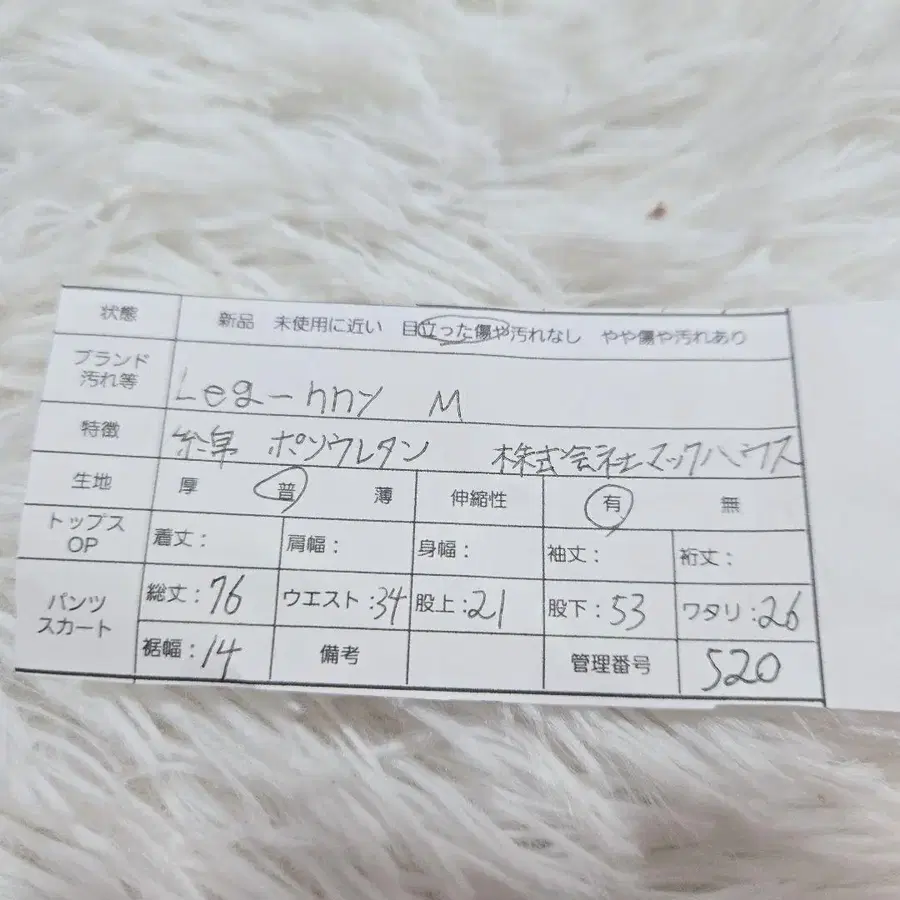 状態 新品 未使用に近い 目立った傷や汚れなし やや傷や汚れあり
ブランド
汚れ等 Leg-nny M
特徴 綿 ポリウレタン 株式会社マックハウス
生地 厚 普 薄 伸縮性 有 無
トップス
OP 着丈: 肩幅: 身幅: 袖丈: 裄丈:
パンツ
スカート 総丈:76 ウエスト:34 股上:21 股下:53 ワタリ:26
裾幅:14 備考 管理番号 520